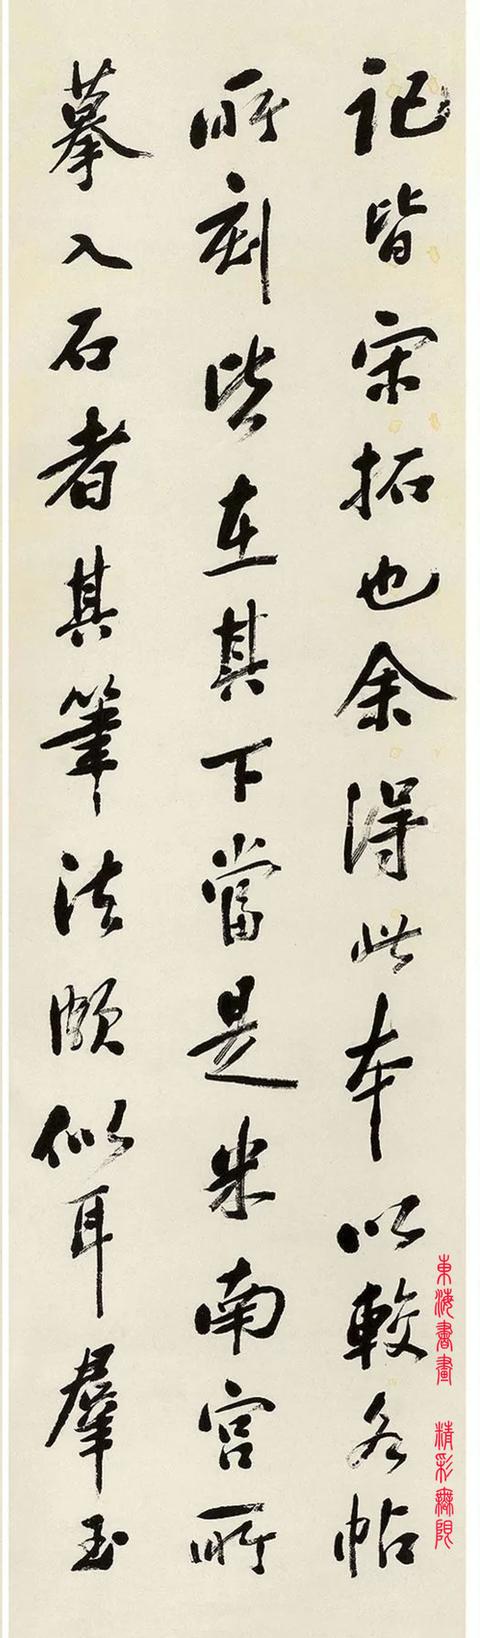 記皆宋拓也余得此本以較各帖
所刻皆在其下當是米南宮所
摹入石者其筆法頗似耳羣玉
東海書畫 精彩無限